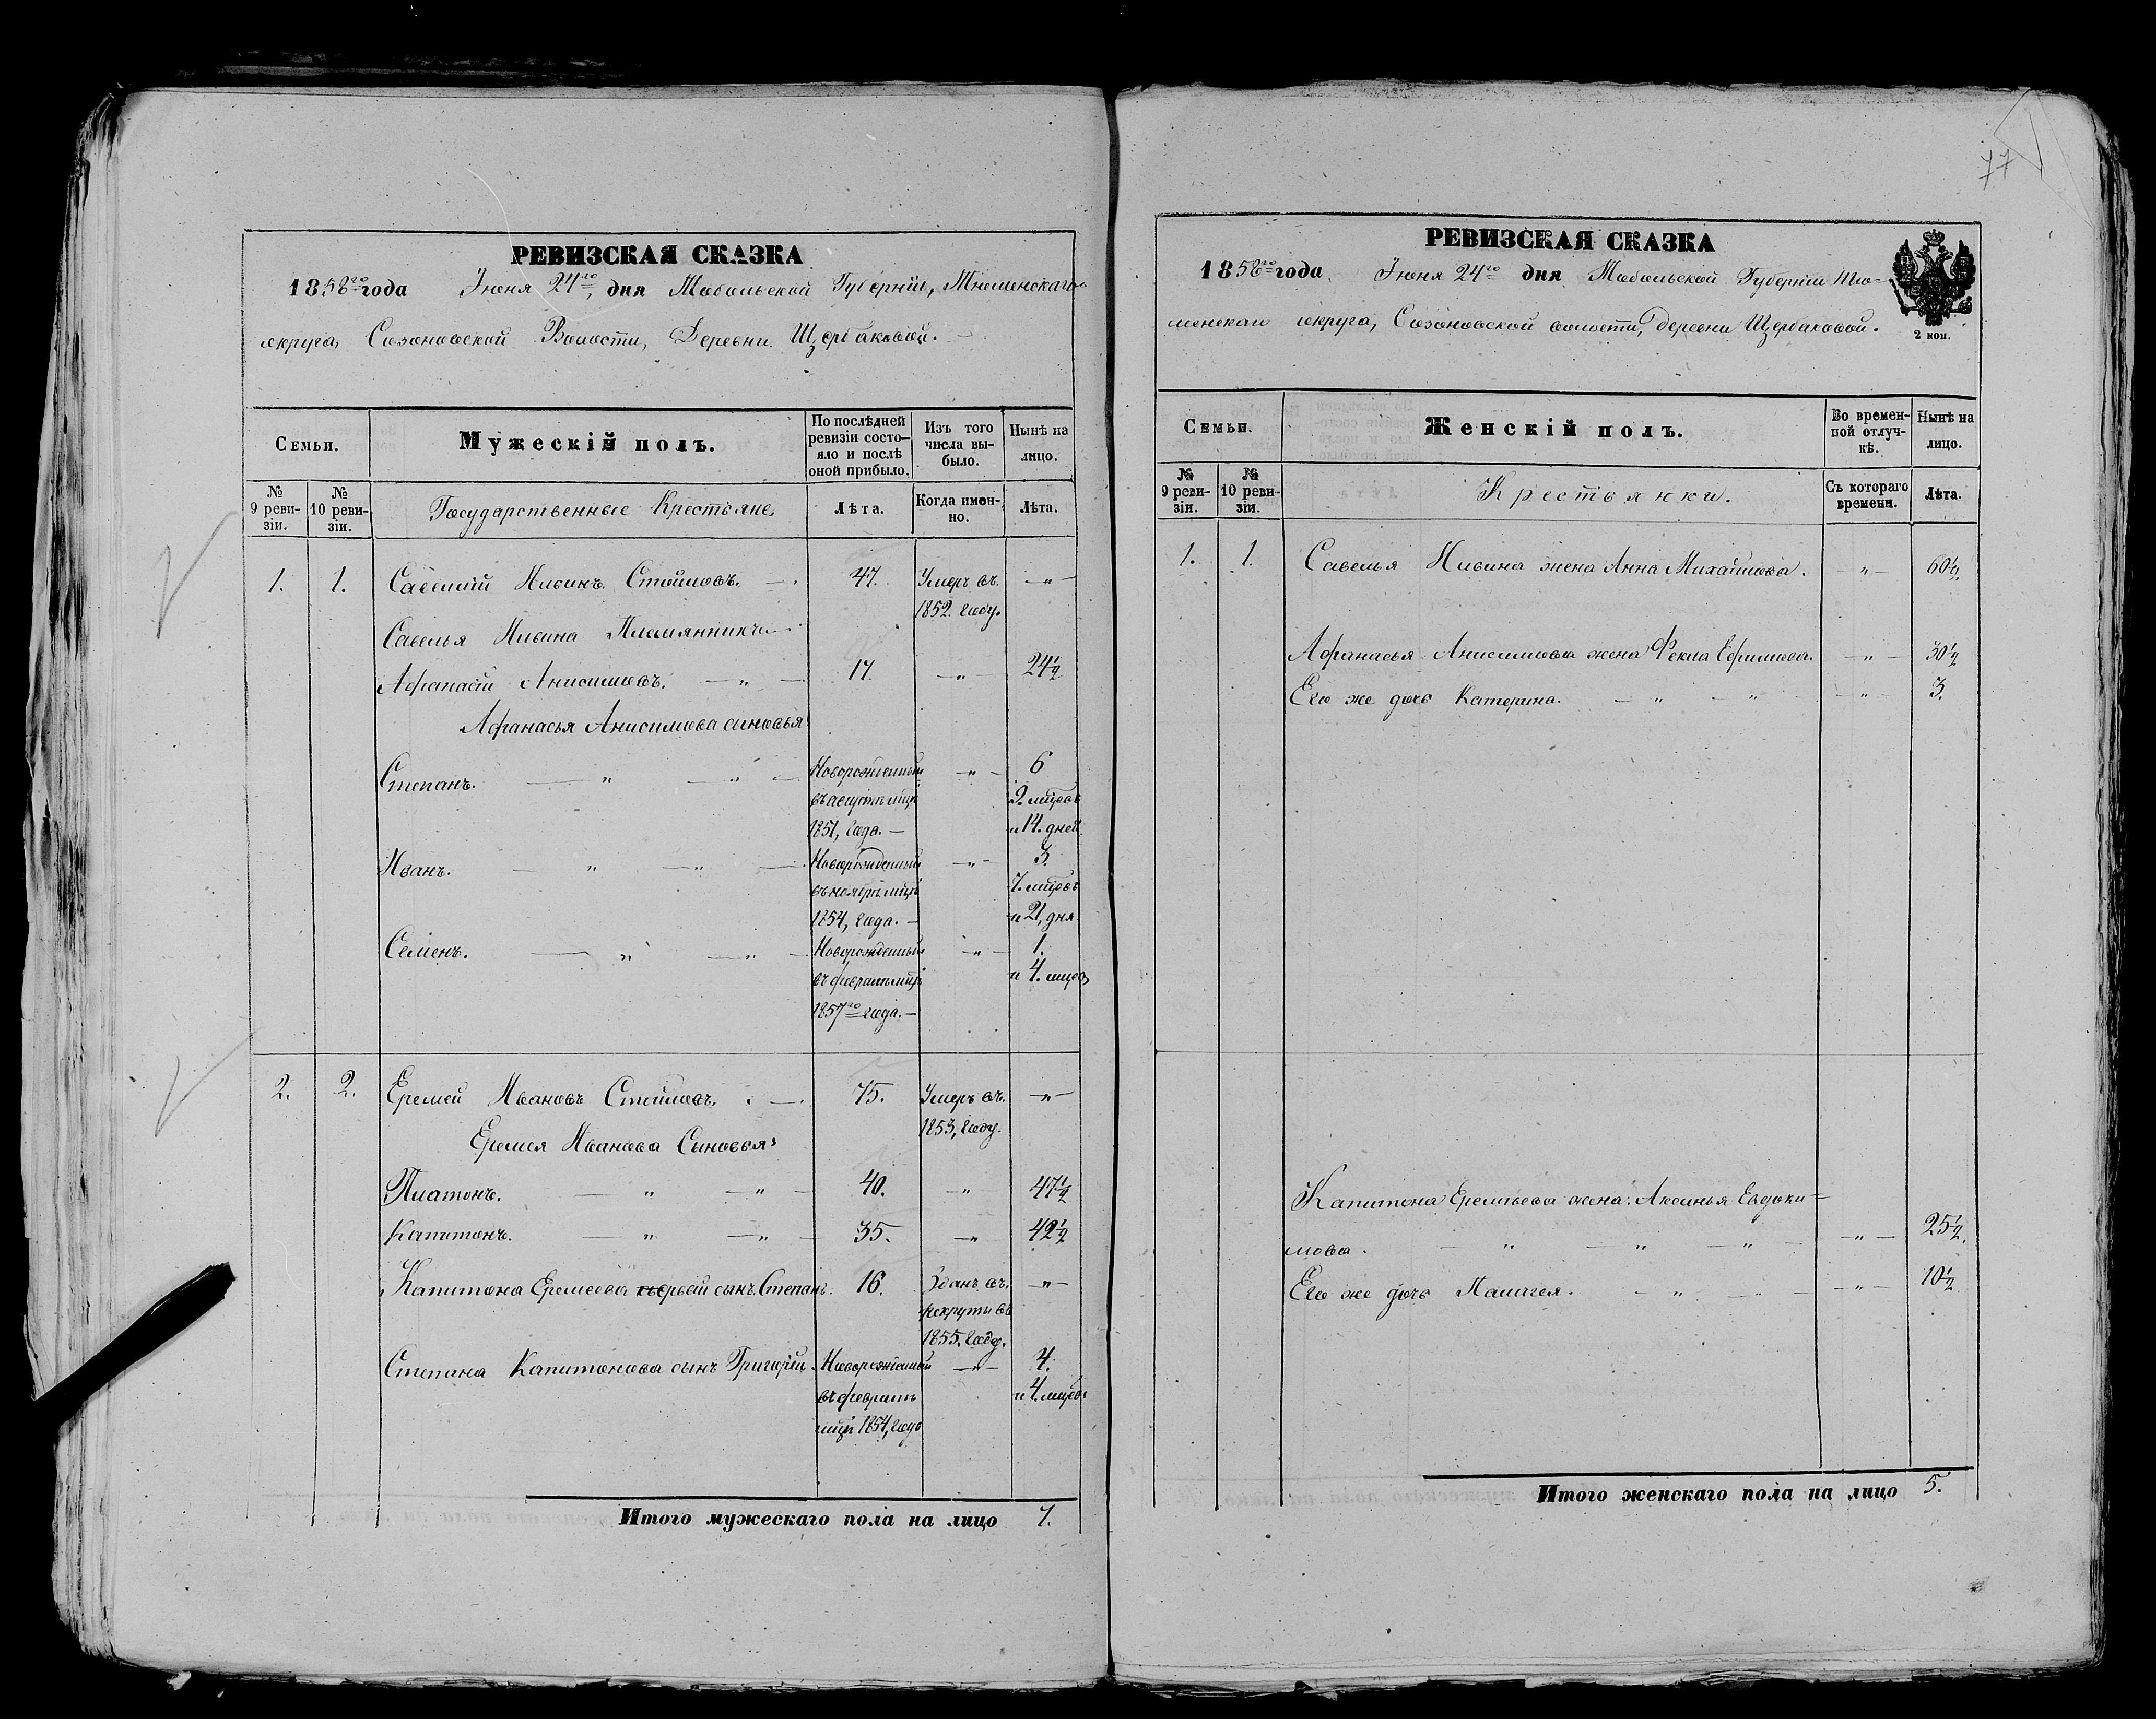 77
РЕВИЗСКАЯ СКАЗКА
1858го года Іюня 24го дня Тобольской Губерніи, Тюменскаго
округа, Созоновской Волости, Деревни Щербаковой.
Семьи.
Мужескій полъ.
По послѣдней ревизіи состояло и послѣ оной прибыло.
Изъ того числа выбыло.
Нынѣ на лицо.
№ 9 ревизіи.
№ 10 ревизіи.
Государственные Крестьяне,
Лѣта.
Когда именно.
Лѣта.
1. 1. Савелій Ивинъ Стойловъ. 47. Умеръ въ — „ —
1852 году.
Савелья Ивина Племянникъ
Афанасій Анисимовъ. — „ — 17. — „ — 24½
Афанасья Анисимова сыновья
Степанъ. — „ — „ — Новорожденный — „ — 6
въ августѣ мцѣ 9. мцовъ
1851, года. — и 14. дней
Иванъ. — „ — „ — Новорожденный — „ — 3.
въ ноябрѣ мцѣ 7. мцовъ
1854, года. — и 21, дня
Семенъ. — „ — „ — Новорожденный — „ — 1.
въ февралѣ мцѣ и 4. мцов
1857го года. —
2. 2. Еремей Ивановъ Стойловъ. — 75. Умеръ въ — „ —
1853, году.
Еремея Иванова Сыновья:
Платонъ. — „ — „ — 40. — „ — 47½
Капитонъ. — „ — „ — 35. — „ — 42½
Капитона Еремеева первой сынъ Степанъ. 16. Зданъ въ — „ —
рекруты въ
1855. году.
Степана Капитонова сынъ Григорій. Новорожденный — „ — 4.
въ февралѣ и 4. мцовъ
мцѣ 1854, года
Итого мужескаго пола на лицо 7.
РЕВИЗСКАЯ СКАЗКА
1858го года Іюня 24го дня Тобольской Губерніи Тю-
менскаго округа, Созоновской волости, деревни Щербаковой.
2 коп.
Семьи.
Женскій полъ.
Во временной отлучкѣ.
Нынѣ на лицо.
№ 9 ревизіи.
№ 10 ревизіи.
Крестьянки.
Съ котораго времени.
Лѣта.
1. 1. Савелья Ивина жена Анна Михайлова. — „ — 60½.
Афанасья Анисимова жена Фекла Ефимова. — „ — 30½
Его же дочь Катерина. — „ — „ — „ — 3.
Капитона Еремѣева жена Аксинья Евдоки-
мова. — „ — „ — „ — „ — 25½.
Его же дочь Палагея. — „ — „ — 10½
Итого женскаго пола на лицо 5.